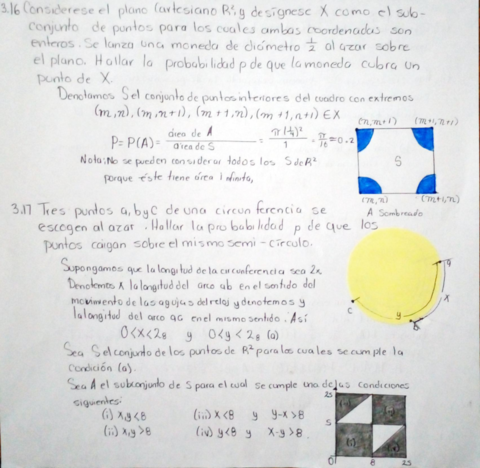 3.16 Considerese el plano Cartesiano R², y designese X como el sub-
conjunto de puntos para los cuales ambas coordenadas son
enteros. Se lanza una moneda de diámetro 1/2 al azar sobre
el plano. Hallar la probabilidad p de que la moneda cubra un
punto de X.
Denotamos S el conjunto de puntos interiores del cuadro con extremos
(m,n), (m,n+1), (m+1,n), (m+1,n+1) ∈ X
P = P(A) = área de A / área de S = π(1/4)² / 1 = π/16 = 0.2
Nota: No se pueden considerar todos los S de R²
porque éste tiene área Infinita,
(n,m+1) (m+1,n+1)
S
(m,n) (m+1,n)
A Sombreado
3.17 Tres puntos a, b y C de una circunferencia se
escogen al azar. Hallar la probabilidad p de que los
puntos caigan sobre el mismo semi-círculo.
Supongamos que la longitud de la circunferencia sea 2s.
Denotemos X la longitud del arco ab en el sentido del
movimiento de las agujas del reloj y denotemos y
la longitud del arco ac en el mismo sentido. Así
0<X<2s y 0<y<2s (a)
Sea S el conjunto de los puntos de R² para los cuales se cumple la
condición (a).
Sea A el subconjunto de S para el cual se cumple una de las condiciones
siguientes:
(i) x,y<s (iii) x<s y y-x>s
(ii) x,y>s (iv) y<s y x-y>s.
a
x
b
y
c
2s
s
0 s 2s